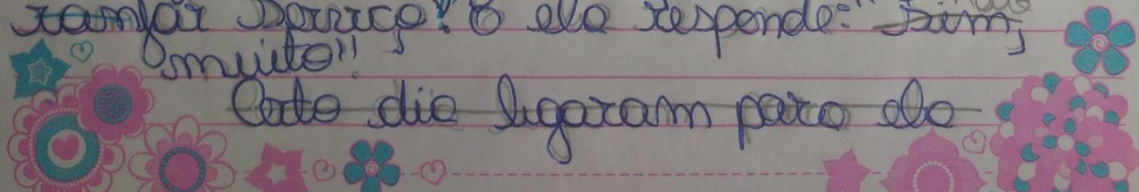 serviço? E ela responde: "Sim,
muito"
Certo dia ligaram para ela